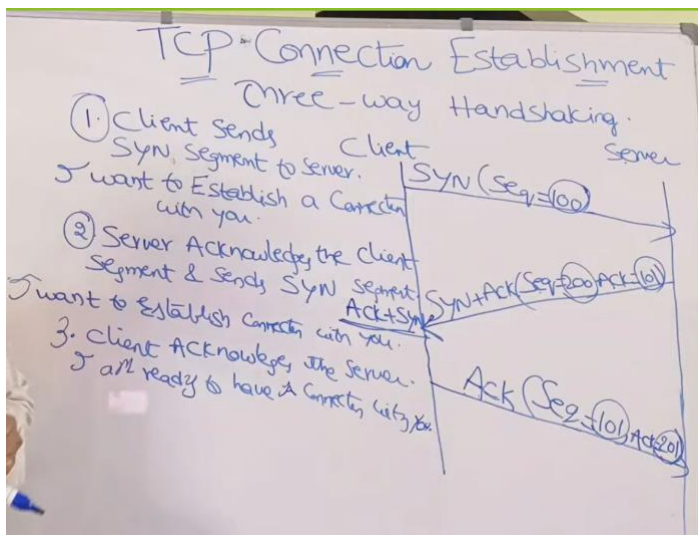 TCP-Connection Establishment
Three-way Handshaking.
1. Client Sends
SYN Segment to Server.
I want to Establish a Connection
with you.
2. Server Acknowledges the Client
Segment & Sends SYN Segment
I want to Establish Connection with you.
3. Client ACKnowleges the Server.
I am ready to have A Connection with you.
Client
Server
SYN (Seq=100)
SYN+ACK (Seq=200, ACK=101)
ACK+SYN
ACK (Seq=101, ACK=201)